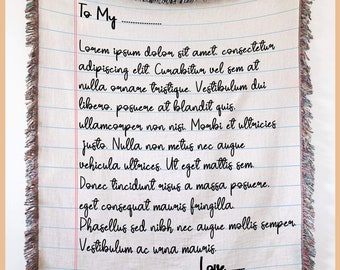 To My ..............
Lorem ipsum dolor sit amet, consectetur
adipiscing elit. Curabitur vel sem at
nulla ornare tristique. Vestibulum dui
libero, posuere at blandit quis,
ullamcorper non nisi. Morbi et ultricies
justo. Nulla non metus nec augue
vehicula ultrices. Ut eget mattis sem.
Donec tincidunt risus a massa posuere,
eget consequat mauris fringilla.
Phasellus sed nibh nec augue mollis semper.
Vestibulum ac urna mauris.
Love,